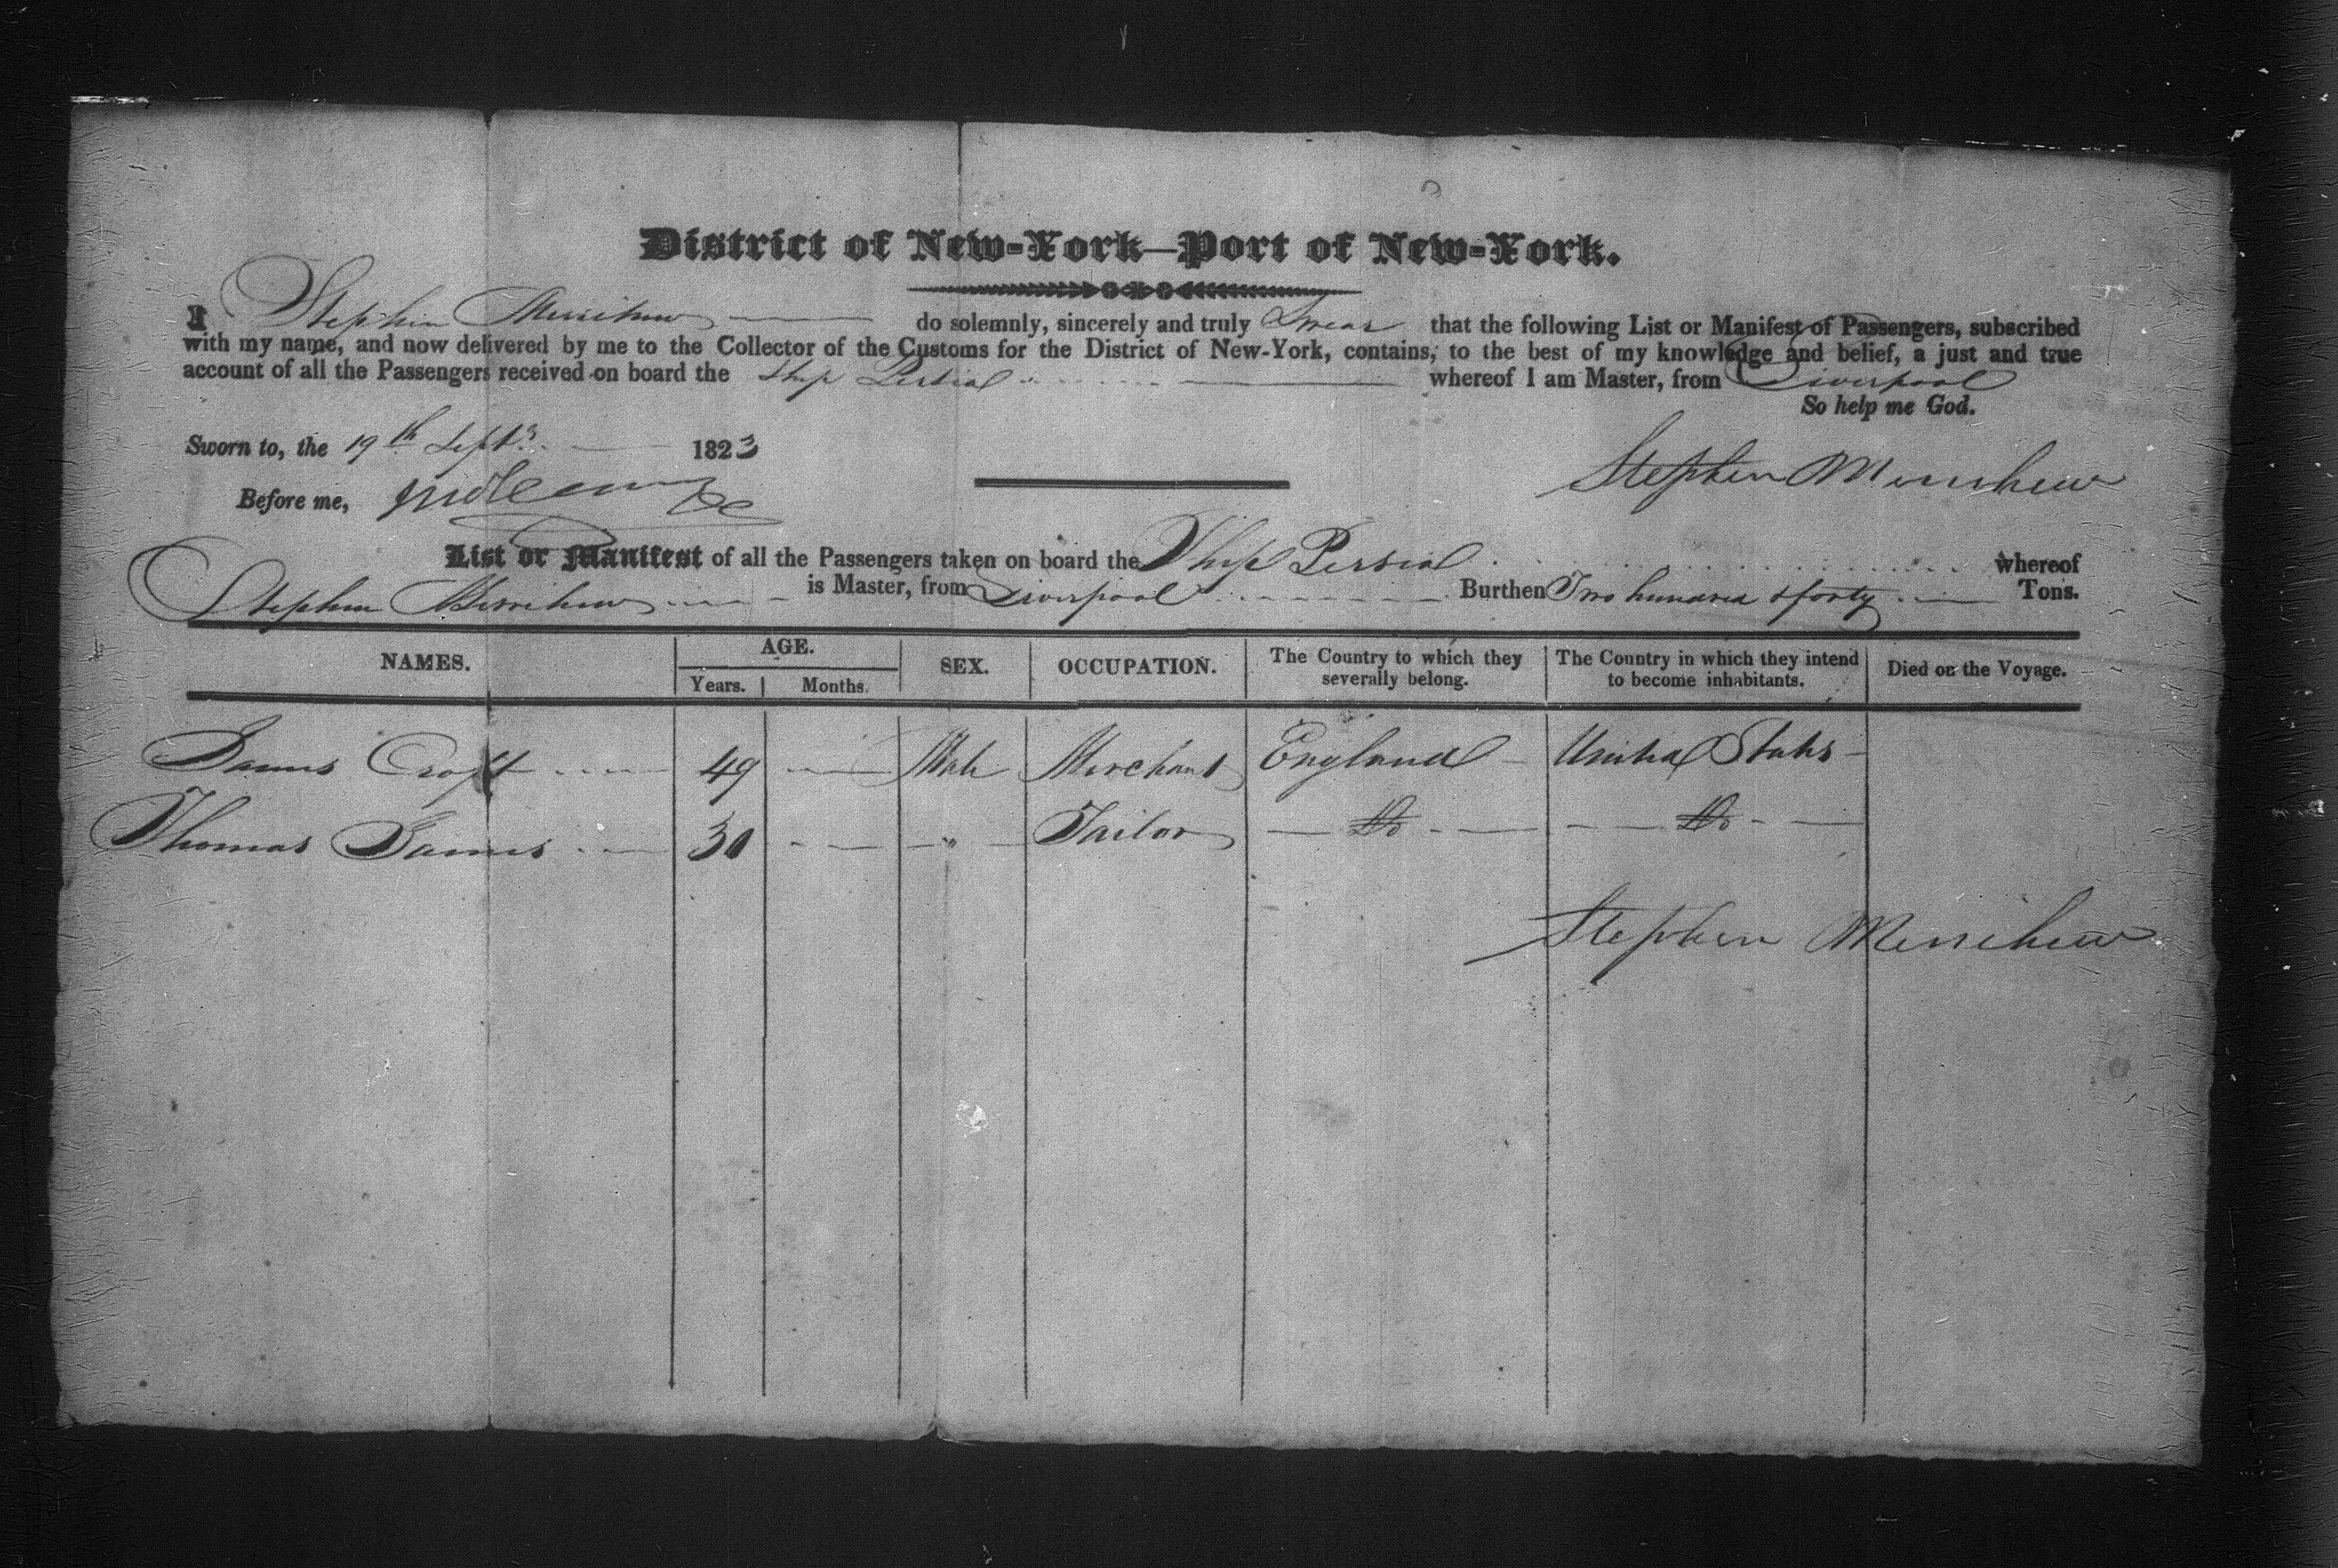 District of New-York—Port of New-York.
I Stephen Merrihew do solemnly, sincerely and truly Swear that the following List or Manifest of Passengers, subscribed
with my name, and now delivered by me to the Collector of the Customs for the District of New-York, contains, to the best of my knowledge and belief, a just and true
account of all the Passengers received on board the Ship Persia whereof I am Master, from Liverpool
So help me God.
Sworn to, the 19th Sept. 1823
Stephen Merrihew
Before me,
List or Manifest of all the Passengers taken on board the Ship Persia whereof
Stephen Merrihew is Master, from Liverpool Burthen Two hundred & forty Tons.
NAMES. AGE. SEX. OCCUPATION. The Country to which they severally belong. The Country in which they intend to become inhabitants. Died on the Voyage.
Years. Months.
James Croft 49 — Male Merchant England United States
Thomas James 30 — " Tailor Do Do
Stephen Merrihew